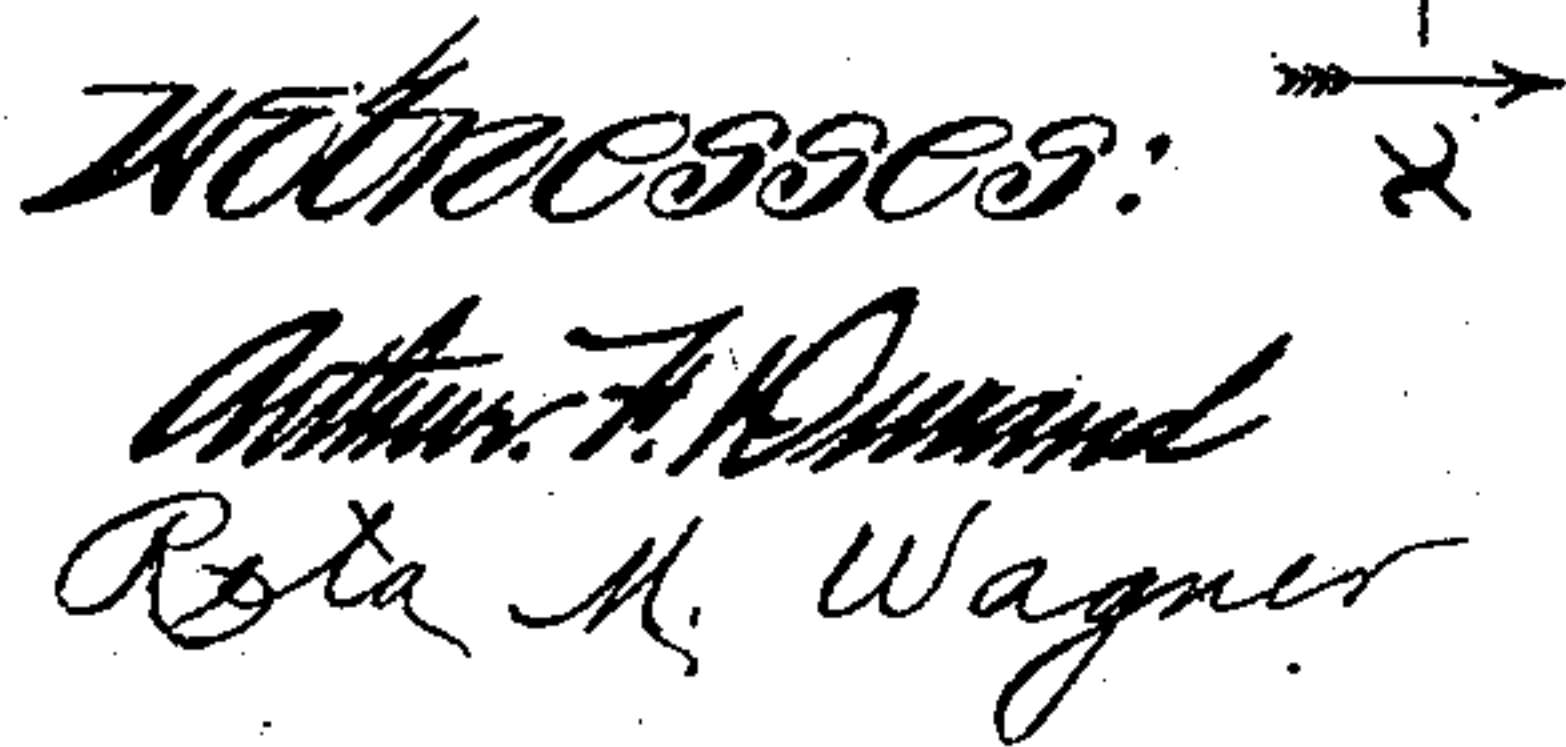 Witnesses:
Arthur. F. Durand
Rosta M. Wagner